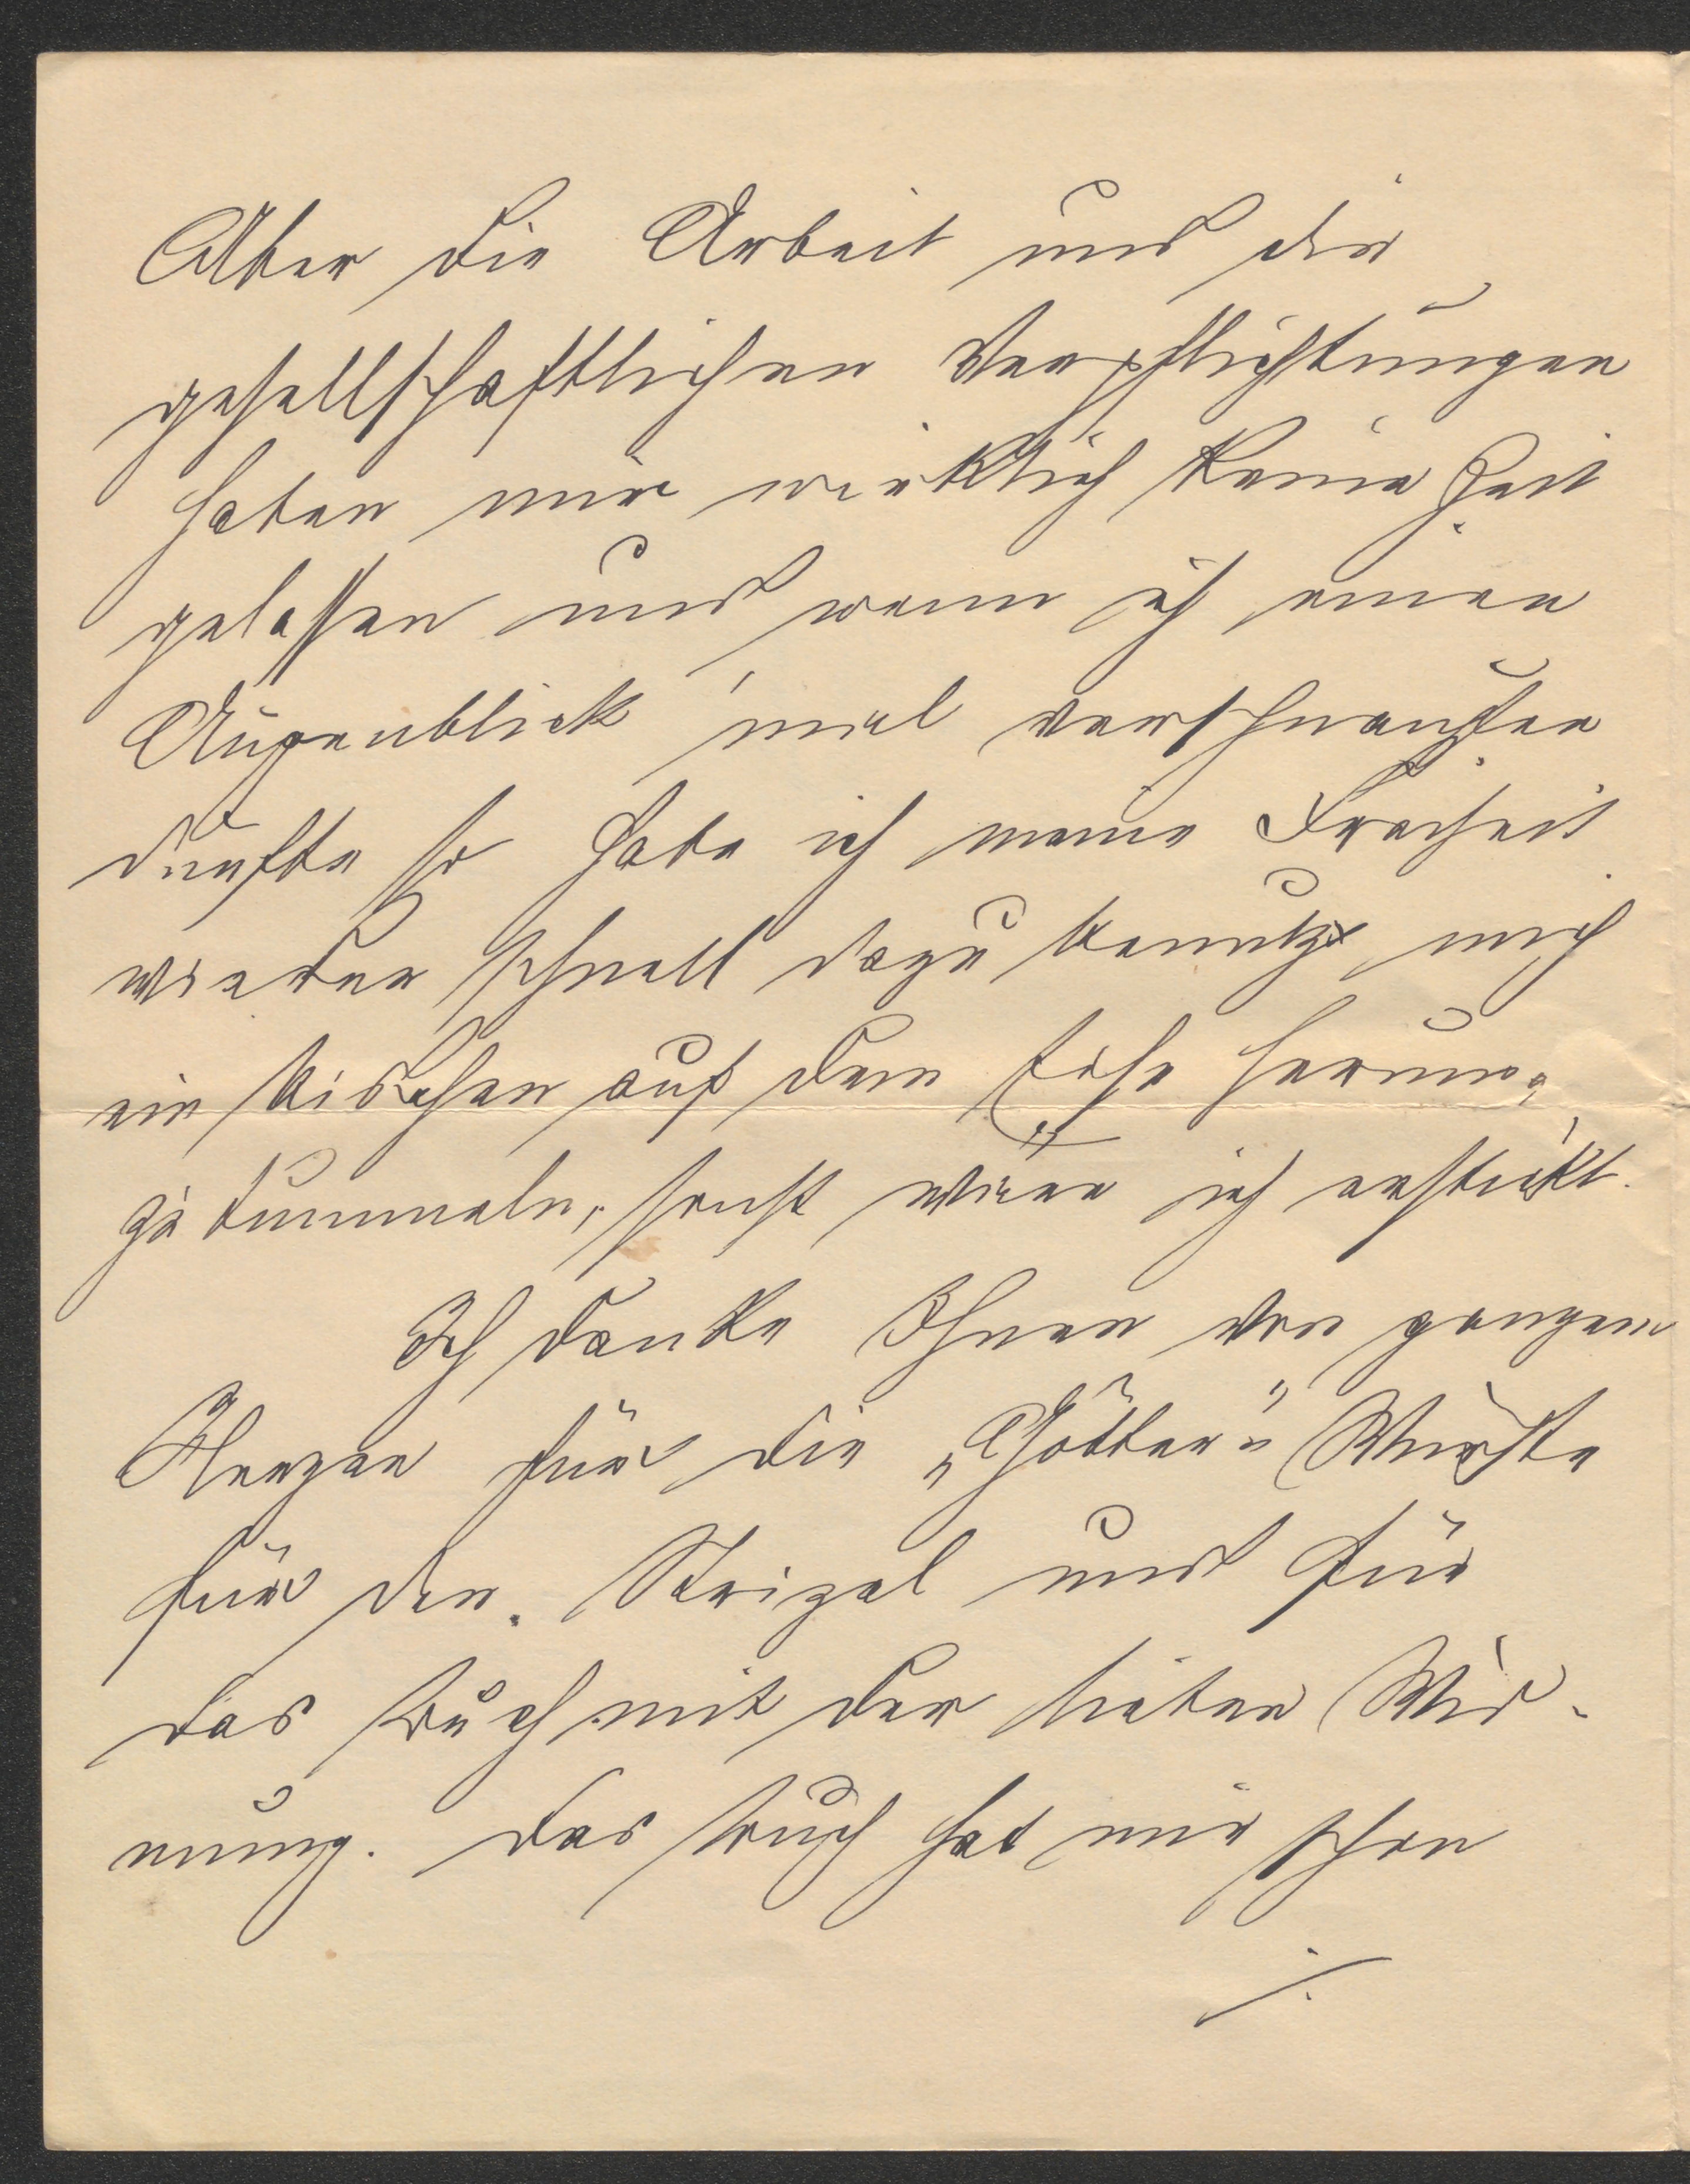 Aber die Arbeit und die
gesellschaftlichen Verpflichtungen
haben mir wirklich keine Zeit
gelassen und wenn ich einen
Augenblick mal verschnaufen
durfte so habe ich meine Freiheit
wieder schnell dazu benutzt mich
ein bischen auf dem Eise herum-
zu tummeln, sonst wäre ich erstickt.
Ich danke Ihnen von ganzem
Herzen für die „Götter"-Würste
für den Strizel und für
das Buch mit der lieben Wid-
mung. Das Buch hat mir schon
./.